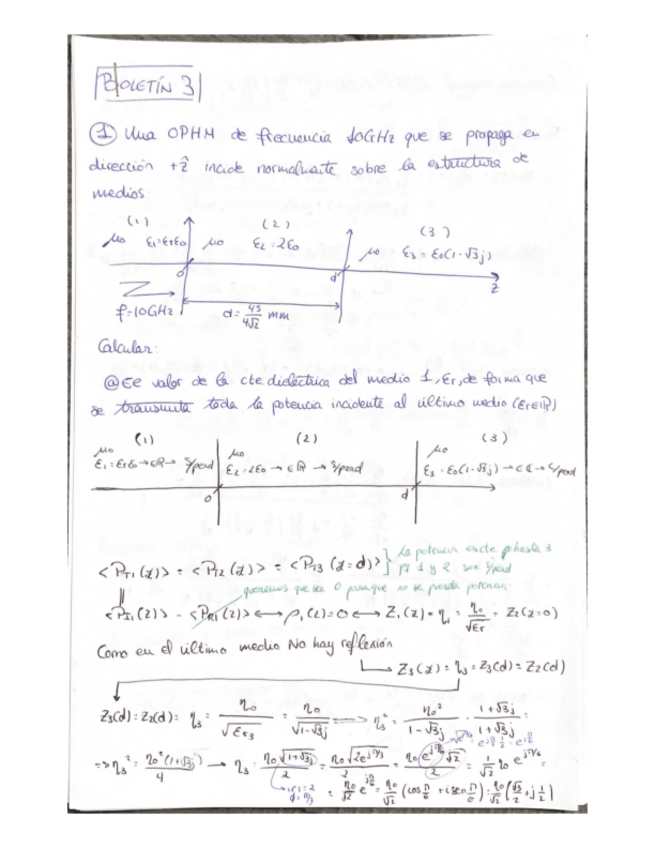 BOLETÍN 3
① Una OPHM de frecuencia 10GHz que se propaga en
dirección +ẑ incide normalmente sobre la estructura de
medios:
(1) (2) (3)
μ₀ ε₁=εrε₀ μ₀ ε₂=2ε₀ μ₀ ε₃=ε₀(1-√3j)
0 d z
f=10GHz d=45/4√2 mm
Calcular:
ⓐ El valor de la cte dieléctrica del medio 1, εr, de forma que
se transmita toda la potencia incidente al último medio (εr∈ℝ)
(1) (2) (3)
μ₀ μ₀ μ₀
ε₁=εrε₀→∈ℝ→s/perd ε₂=2ε₀→∈ℝ→s/perd ε₃=ε₀(1-√3j)→∈ℂ→c/perd
0 d
<P_T1(z)> = <P_T2(z)> = <P_T3(z=d)> } la potencia es cte hasta 3
1 y 2 son s/perd
queremos que sea 0 para que no se pierda potencia
<P_I1(z)> - <P_R1(z)> ⟷ ρ₁(z)=0 ⟷ Z₁(z)=η₁=η₀/√εr = Z₂(z=0)
Como en el último medio No hay reflexión
→ Z₃(z)=η₃=Z₃(d)=Z₂(d)
Z₃(d)=Z₂(d)=η₃=η₀/√εr₃=η₀/√(1-√3j) ⟹ η₃²=η₀²/(1-√3j)·(1+√3j)/(1+√3j)=
⟹ η₃²=η₀²(1+√3j)/4 → η₃=η₀√(1+√3j)/2=η₀√(2e^(jπ/3))/2=η₀e^(jπ/6)√2/2=1/√2 η₀e^(jπ/6)=
=η₀/√2 e^(jπ/6)=η₀/√2(cos π/6 + j sen π/6)=η₀/√2(√3/2+j1/2)